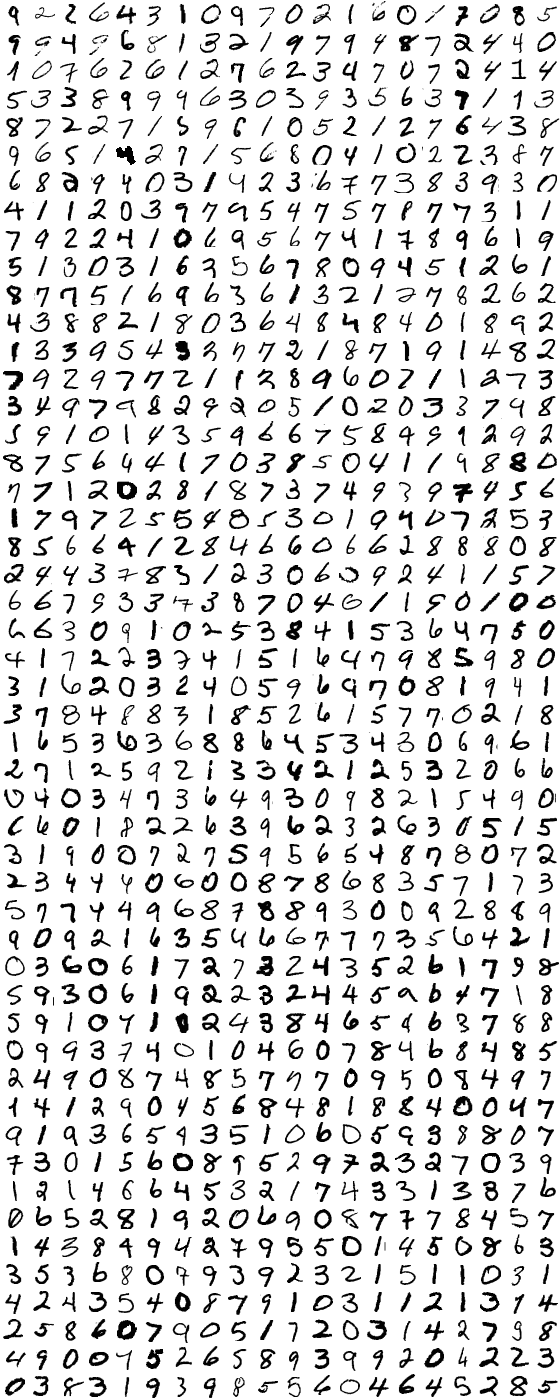 9 2 2 6 4 3 1 0 9 7 0 2 1 6 0 1 7 0 8 5
9 9 4 9 6 8 1 3 2 1 9 7 9 4 8 7 2 4 4 0
1 0 7 6 2 6 1 2 7 6 2 3 4 7 0 7 2 4 1 4
5 3 3 8 9 9 9 6 3 0 3 9 3 5 6 3 7 1 1 3
8 7 2 2 7 1 5 9 6 1 0 5 2 1 2 7 6 4 3 8
9 6 5 1 4 2 7 1 5 6 8 0 4 1 0 2 2 3 8 7
6 8 2 9 4 0 3 1 4 2 3 6 7 7 3 8 3 9 3 0
4 1 1 2 0 3 9 7 9 5 4 7 5 7 8 7 7 3 1 1
7 9 2 2 4 1 0 6 9 5 6 7 4 1 7 8 9 6 1 9
5 1 3 0 3 1 6 2 5 6 7 8 0 9 4 5 1 2 6 1
8 7 7 5 1 6 9 6 3 6 1 3 2 1 2 7 8 2 6 2
4 3 8 8 2 1 8 0 3 6 4 8 4 8 4 0 1 8 9 2
1 3 3 9 5 4 3 2 7 7 2 1 8 7 1 9 1 4 8 2
7 9 2 9 7 7 2 1 1 2 8 9 6 0 7 1 1 2 7 3
3 4 9 7 9 8 2 9 2 0 5 1 0 2 0 3 3 7 9 8
5 9 1 0 1 4 3 5 9 6 6 7 5 8 4 9 1 2 9 2
8 7 5 6 4 4 1 7 0 3 8 5 0 4 1 1 9 8 8 0
7 7 1 2 0 2 8 1 8 7 3 7 4 9 3 9 7 4 5 6
1 7 9 7 2 5 5 4 8 5 3 0 1 9 4 0 7 2 5 3
8 5 6 6 4 1 2 8 4 6 6 0 6 6 2 8 8 8 0 8
2 4 4 3 7 8 3 1 2 3 0 6 0 9 2 4 1 1 5 7
6 6 7 9 3 3 7 3 8 7 0 4 6 1 1 9 0 1 0 0
6 6 3 0 9 1 0 2 5 3 8 4 1 5 3 6 4 7 5 0
4 1 7 2 2 3 7 4 1 5 1 6 4 7 9 8 5 9 8 0
3 1 6 2 0 3 2 4 0 5 9 6 9 7 0 8 1 9 4 1
3 7 8 4 8 8 3 1 8 5 2 6 1 5 7 7 0 2 1 8
1 6 5 3 6 3 6 8 8 6 4 5 3 4 3 0 6 9 6 1
2 7 1 2 5 9 2 1 3 3 4 2 1 2 5 3 2 0 6 6
0 4 0 3 4 7 3 6 4 9 3 0 9 8 2 1 5 4 9 0
6 6 0 1 8 2 2 6 3 9 6 2 3 2 6 3 0 5 1 5
3 1 9 0 0 7 2 7 5 9 5 6 5 4 8 7 8 0 7 2
2 3 4 4 4 0 6 0 0 8 7 8 6 8 3 5 7 1 7 3
5 7 7 4 4 9 6 8 7 8 8 9 3 0 0 9 2 8 8 9
9 0 9 2 1 6 3 5 4 6 6 7 7 7 3 5 6 4 2 1
0 3 6 0 6 1 7 2 7 3 2 4 3 5 2 6 1 7 9 8
5 9 3 0 6 1 9 2 2 3 2 4 4 5 9 6 4 7 1 8
5 9 1 0 7 1 0 2 4 3 8 4 6 5 4 6 3 7 8 8
0 9 9 3 7 4 0 1 0 4 6 0 7 8 4 6 8 4 8 5
2 4 9 0 8 7 4 8 5 7 7 7 0 9 5 0 8 4 9 7
1 4 1 2 9 0 4 5 6 8 4 8 1 8 8 4 0 0 4 7
9 1 9 3 6 5 9 3 5 1 0 6 0 5 9 3 8 8 0 7
7 3 0 1 5 6 0 8 9 5 2 9 7 2 3 2 7 0 3 9
1 2 1 4 6 6 4 5 3 2 1 7 4 3 3 1 3 3 7 6
0 6 5 2 8 1 9 2 0 6 9 0 8 7 7 7 8 4 5 7
1 4 3 8 4 9 4 2 7 9 5 5 0 1 4 5 0 8 6 3
3 5 3 6 8 0 7 9 3 9 2 3 2 1 5 1 1 0 3 1
4 2 4 3 5 4 0 8 7 9 1 0 3 1 1 2 1 3 7 4
2 5 8 6 0 7 9 0 5 1 7 2 0 3 1 4 2 7 9 8
4 9 0 0 7 5 2 6 5 8 9 3 9 9 2 0 4 2 2 3
0 3 8 3 1 9 3 9 8 5 5 6 0 4 6 4 5 2 8 5